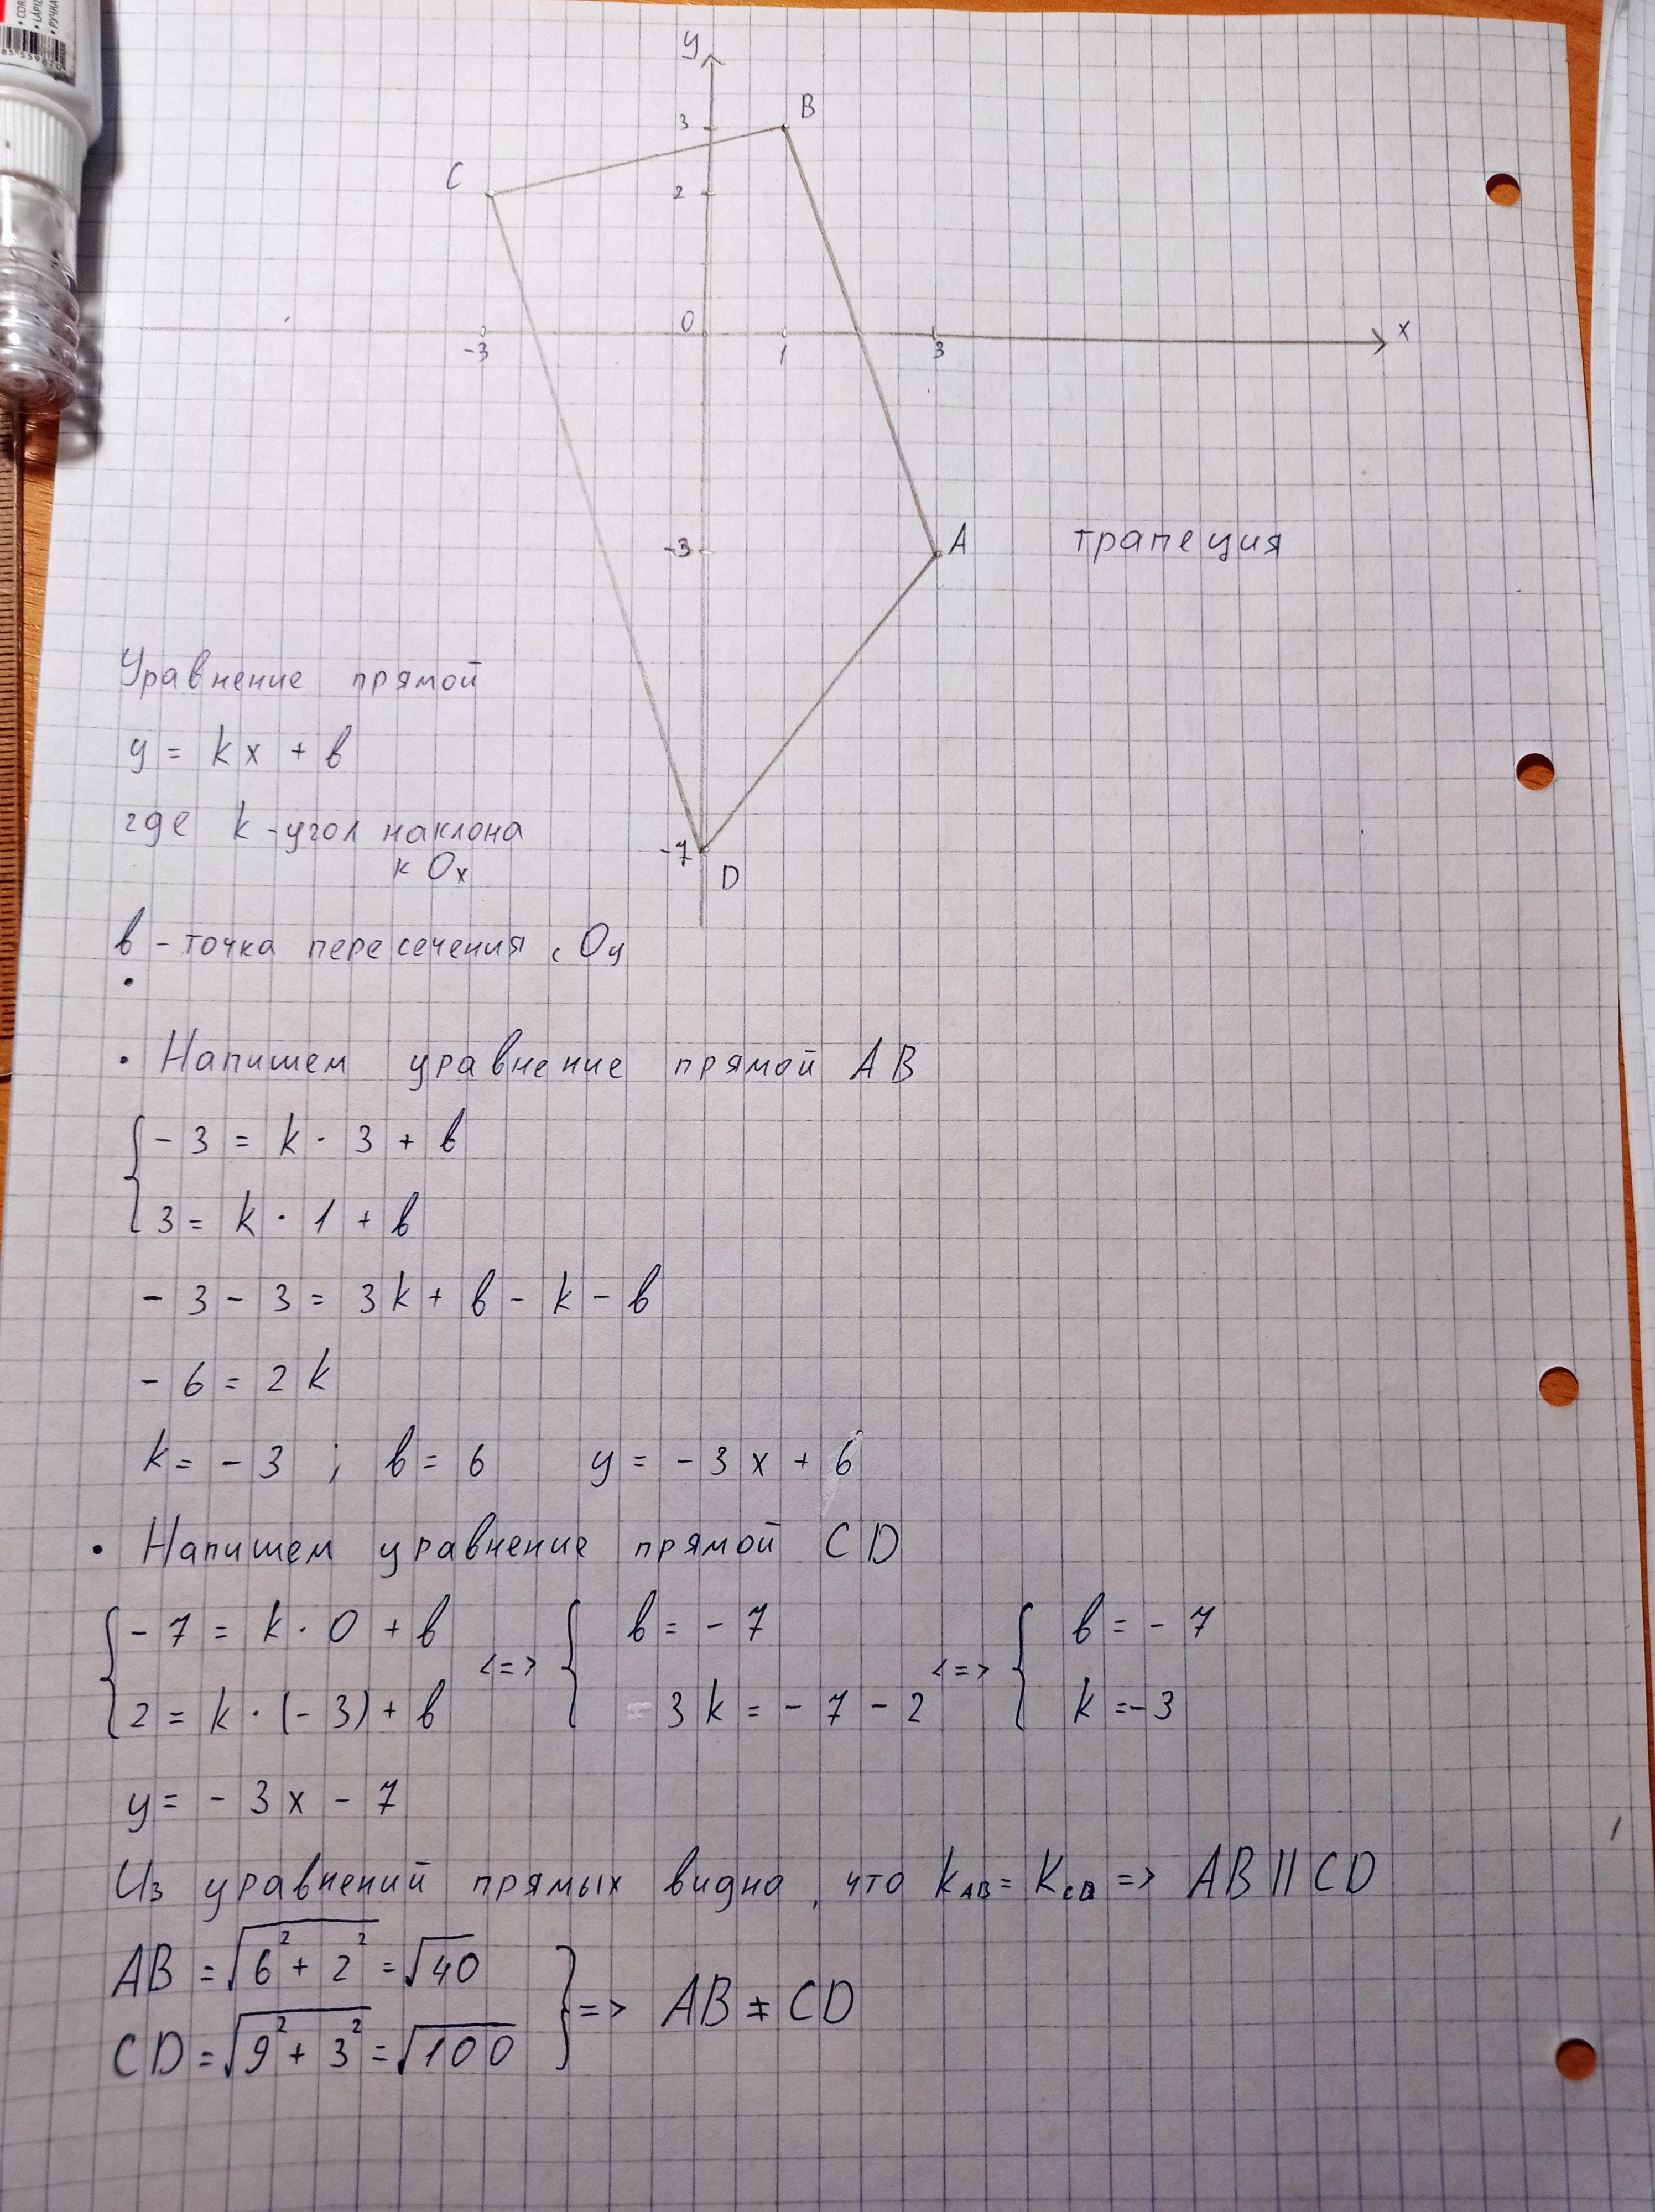 y
B
3
C
2
0
-3 1 3 x
-3 A трапеция
Уравнение прямой
y = kx + b
где k - угол наклона
к Ox
-7
D
b - точка пересечения с Oy
• Напишем уравнение прямой AB
-3 = k · 3 + b
3 = k · 1 + b
-3 - 3 = 3k + b - k - b
-6 = 2k
k = -3 ; b = 6 y = -3x + 6
• Напишем уравнение прямой CD
-7 = k · 0 + b <=> b = -7 <=> b = -7
2 = k · (-3) + b 3k = -7 - 2 k = -3
y = -3x - 7
Из уравнений прямых видно, что k_AB = k_CD => AB || CD
AB = √(6² + 2²) = √40
=> AB ≠ CD
CD = √(9² + 3²) = √100